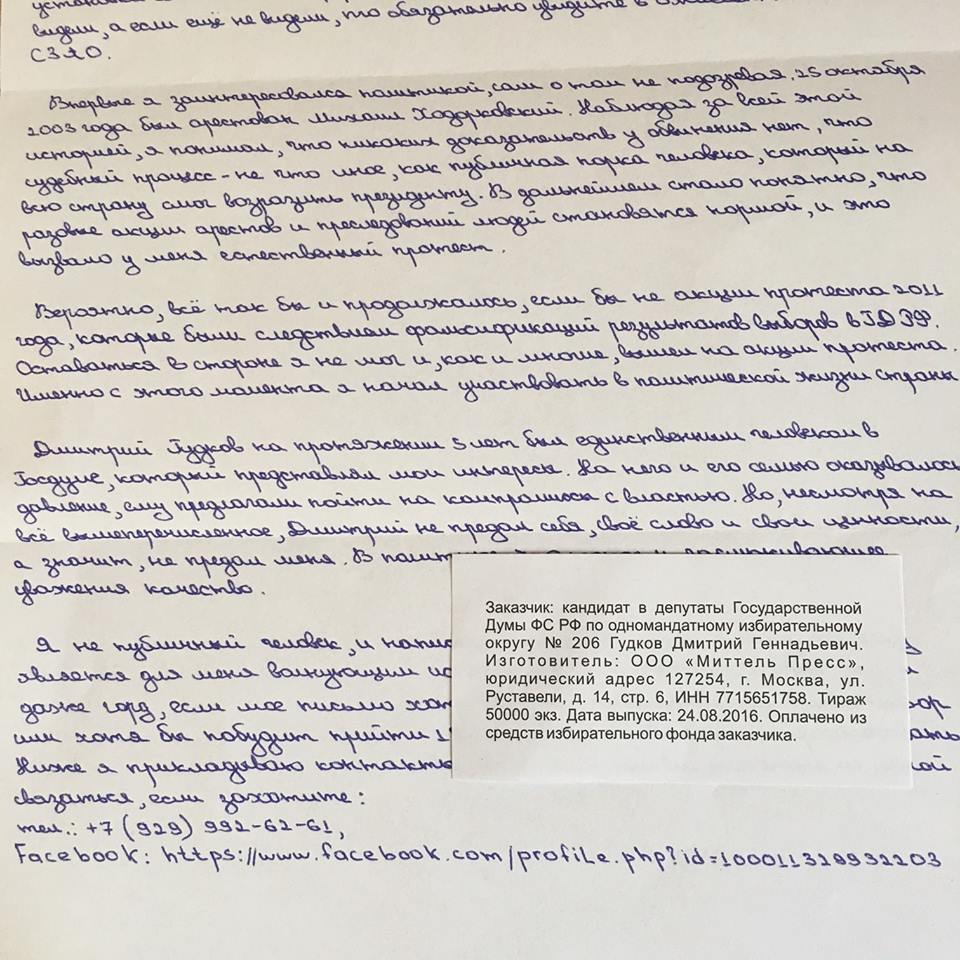 видели, а если ещё не видели, то обязательно увидите в
СЗАО.
Впервые я заинтересовался политикой, сам о том не подозревая. 25 октября
2003 года был арестован Михаил Ходорковский. Наблюдая за всей этой
историей, я понимал, что никаких доказательств у обвинения нет, что
судебный процесс - не что иное, как публичная порка человека, который на
всю страну смог возразить президенту. В дальнейшем стало понятно, что
разовые акции арестов и преследований людей становятся нормой, и это
вызвало у меня естественный протест.
Вероятно, всё так бы и продолжалось, если бы не акции протеста 2011
года, которые были следствием фальсификаций результатов выборов в ГД РФ.
Оставаться в стороне я не мог и, как и многие, вышел на акции протеста.
Именно с этого момента я начал участвовать в политической жизни страны
Дмитрий Гудков на протяжении 5 лет был единственным человеком в
Госдуме, который представлял мои интересы. На него и его семью оказывалось
давление, ему предлагали пойти на компромиссы с властью. Но, несмотря на
всё вышеперечисленное, Дмитрий не предал себя, своё слово и свои ценности,
а значит, не предал меня. В
уважения качество.
Я не публичный человек, и
является для меня волнующим
даже горд, если мое письмо
или хотя бы побудит прийти
Ниже я прикладываю
связаться, если захотите:
тел.: +7 (929) 992-62-61,
Facebook: https://www.facebook.com/profile.php?id=100011328932203
Заказчик: кандидат в депутаты Государственной
Думы ФС РФ по одномандатному избирательному
округу № 206 Гудков Дмитрий Геннадьевич.
Изготовитель: ООО «Миттель Пресс»,
юридический адрес 127254, г. Москва, ул.
Руставели, д. 14, стр. 6, ИНН 7715651758. Тираж
50000 экз. Дата выпуска: 24.08.2016. Оплачено из
средств избирательного фонда заказчика.